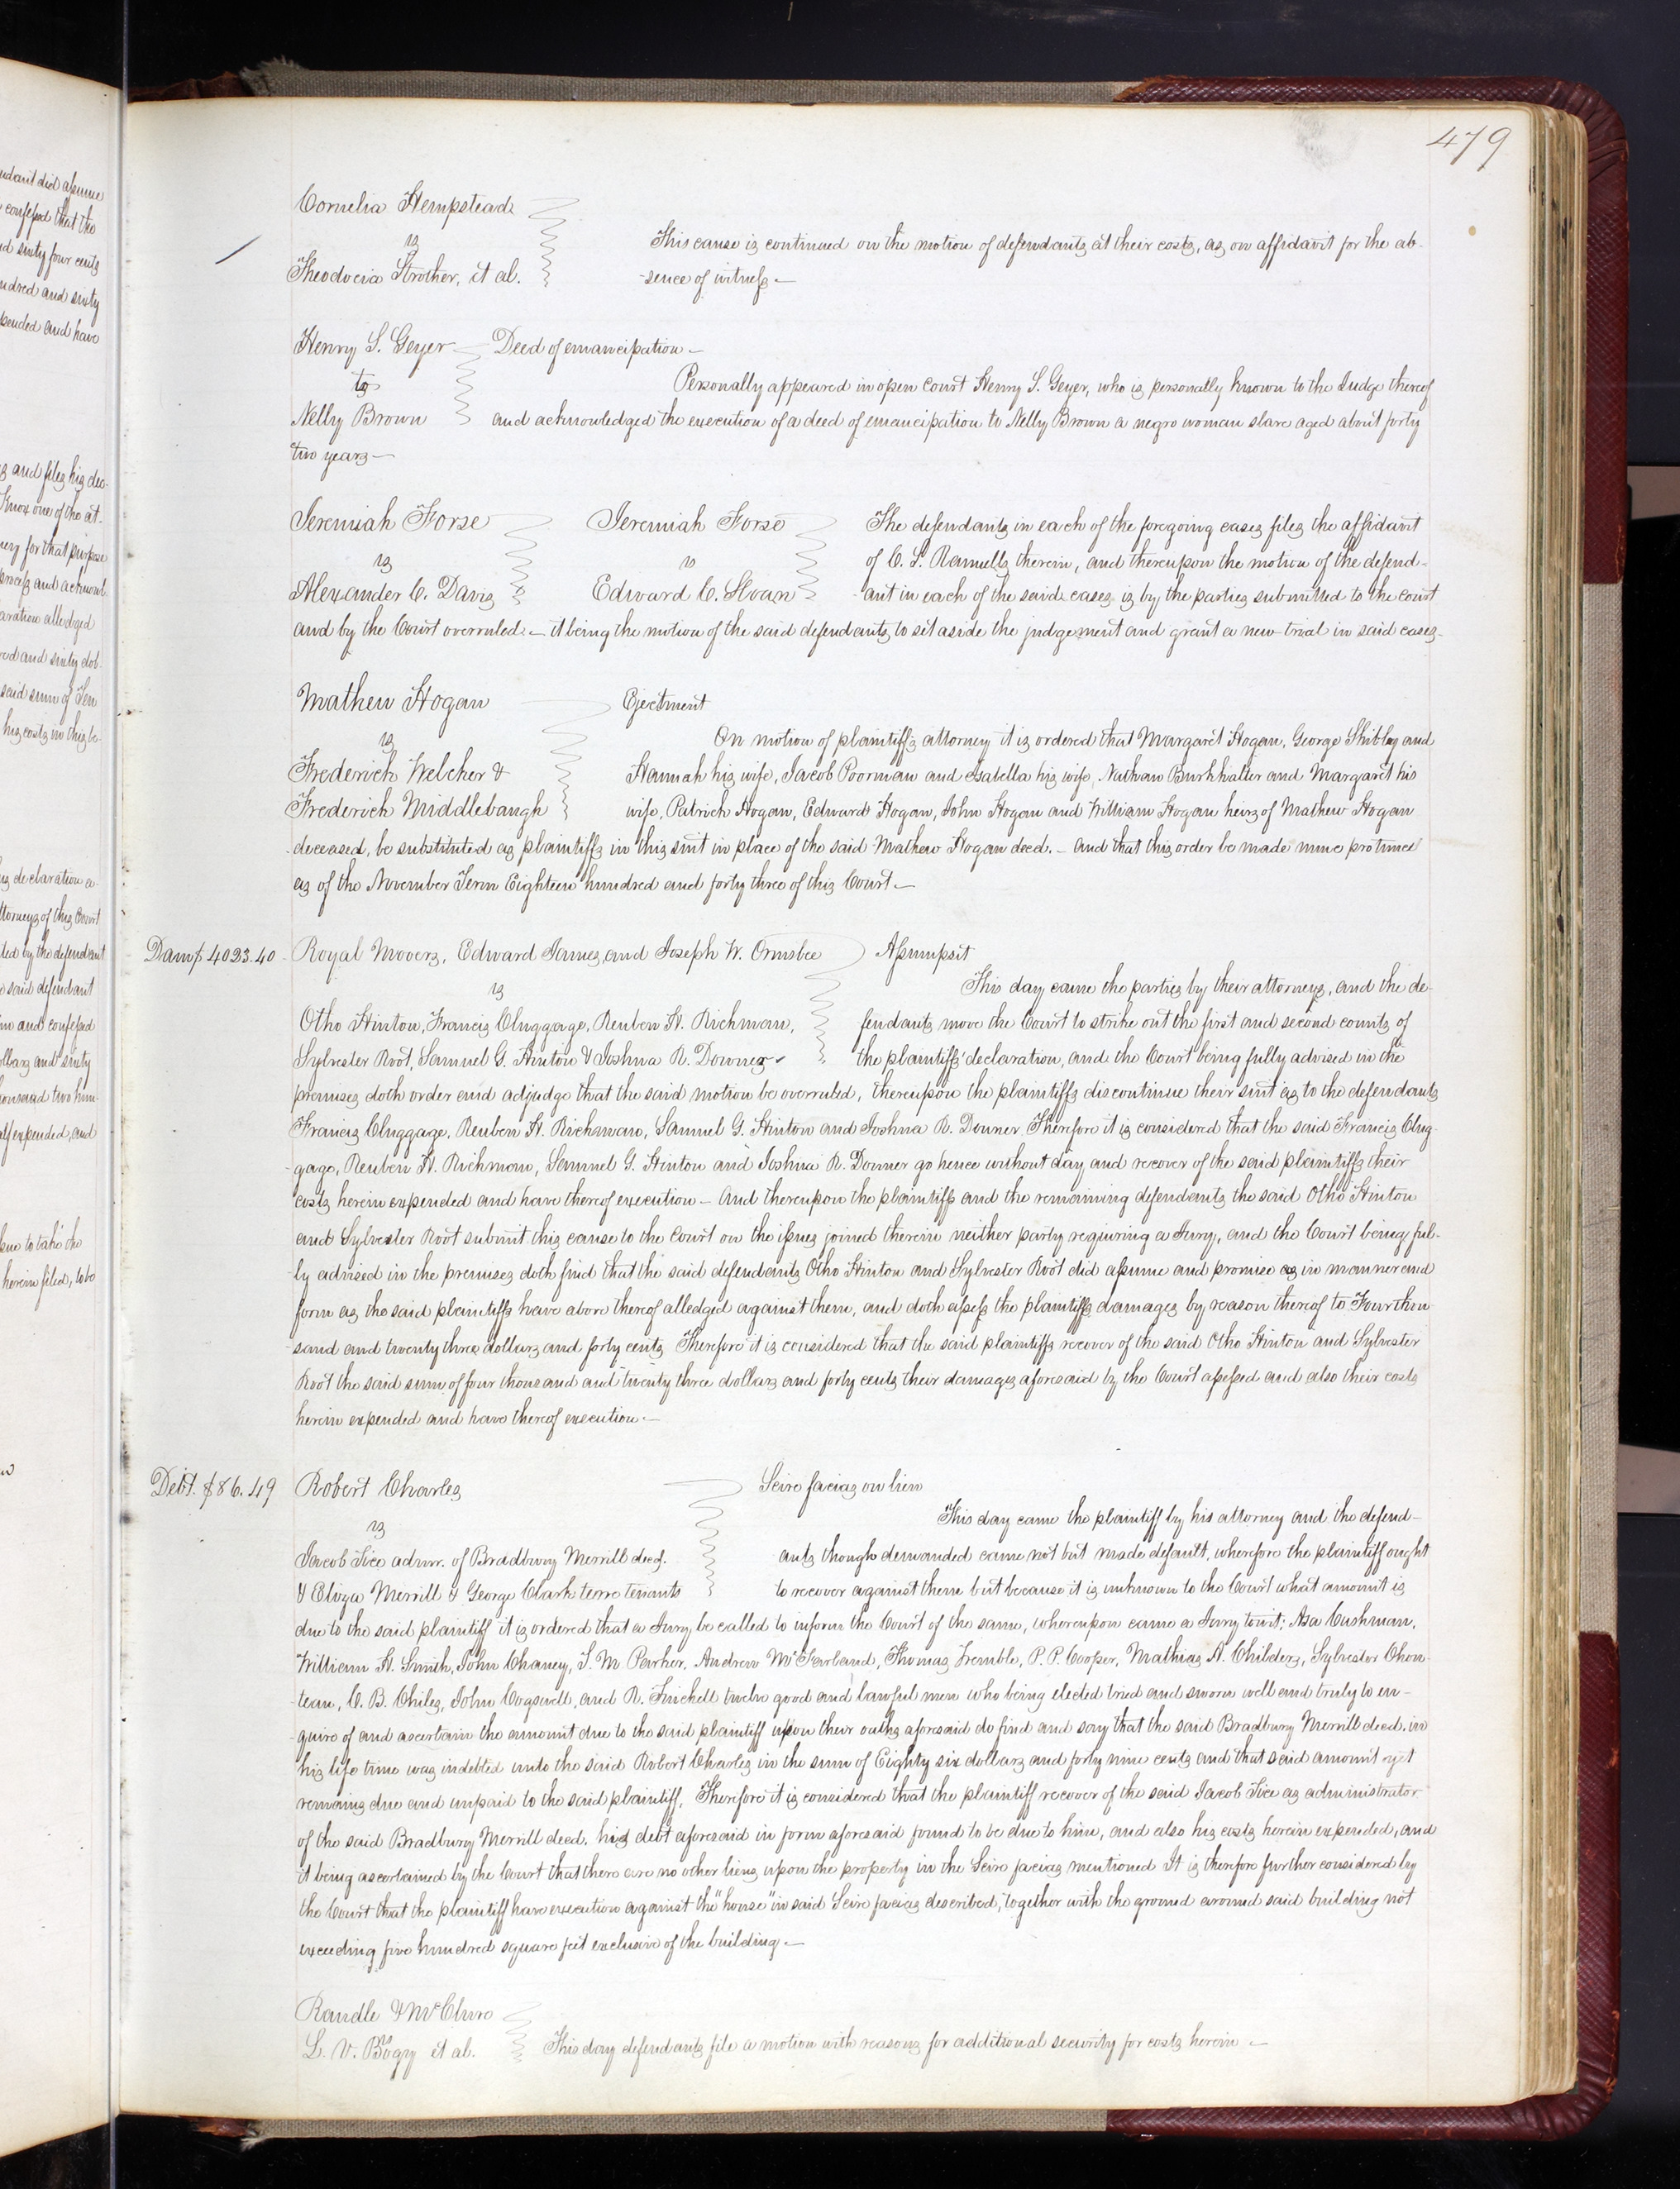 479
Cornelia Hempstead
vs
Theodocia Strother, et al.
This cause is continued on the motion of defendants at their costs, as on affidavit for the ab-
-sence of witness —
Henry S. Geyer — Deed of emancipation —
to
Nelly Brown
Personally appeared in open court Henry S. Geyer, who is personally known to the Judge thereof
and acknowledged the execution of a deed of emancipation to Nelly Brown a negro woman slave aged about forty
two years —
Jeremiah Forse
vs
Alexander C. Davis
Jeremiah Forse
vs
Edward C. Sloan
The defendants in each of the foregoing cases files the affidavit
of C. S. Rannells therein, and thereupon the motion of the defend-
-ant in each of the said cases is by the parties submitted to the court
and by the Court overruled. — it being the motion of the said defendants to set aside the judgement and grant a new trial in said cases—
Mathew Hogan
vs
Frederick Welcher &
Frederick Middlebaugh
Ejectment
On motion of plaintiff's attorney it is ordered that Margaret Hogan, George Shibley and
Hannah his wife, Jacob Poorman and Isabella his wife, Nathan Burkhalter and Margaret his
wife, Patrick Hogan, Edward Hogan, John Hogan and William Hogan heirs of Mathew Hogan
deceased, be substituted as plaintiffs in this suit in place of the said Mathew Hogan deced. — and that this order be made nunc pro tunc
as of the November Term Eighteen hundred and forty three of this Court —
Dam $4023.40
Royal Moovers, Edward James, and Joseph W. Ormsbee
vs
Otho Hinton, Francis Cluggage, Reuben H. Richman,
Sylvester Root, Samuel G. Hinton & Joshua R. Downer
Assumpsit
This day came the parties by their attorneys, and the de-
fendants move the Court to strike out the first and second counts of
the plaintiffs' declaration, and the Court being fully advised in the
premises doth order and adjudge that the said motion be overruled, thereupon the plaintiffs discontinue their suit as to the defendants
Francis Cluggage, Reuben H. Richman, Samuel G. Hinton and Joshua R. Downer, Therefore it is considered that the said Francis Clug-
-gage, Reuben H. Richman, Samuel G. Hinton and Joshua R. Downer go hence without day and recover of the said plaintiffs their
costs herein expended and have thereof execution — And thereupon the plaintiffs and the remaining defendants the said Otho Hinton
and Sylvester Root submit this cause to the Court on the issues joined therein neither party requiring a Jury, and the Court being ful-
-ly advised in the premises doth find that the said defendants Otho Hinton and Sylvester Root did assume and promise as in manner and
form as the said plaintiffs have above thereof alledged against them, and doth assess the plaintiffs damages by reason thereof to Four thou-
-sand and twenty three dollars and forty cents Therefore it is considered that the said plaintiffs recover of the said Otho Hinton and Sylvester
Root the said sum of four thousand and twenty three dollars and forty cents their damages aforesaid by the Court assessed and also their costs
herein expended and have thereof execution. —
Debt. $86.49
Robert Charles
vs
Jacob Tice admr. of Bradbury Merrill decd.
& Eliza Merrill & George Clark terre tenants
Scire facias on lien
This day came the plaintiff by his attorney and the defend-
ants though demanded came not but made default, wherefore the plaintiff ought
to recover against them but because it is unknown to the Court what amount is
due to the said plaintiff it is ordered that a Jury be called to inform the Court of the same, whereupon came a Jury towit; Asa Cushman,
William H. Smith, John Chaney, S. M Parker, Andrew McFarland, Thomas Tremble, P. P. Cooper, Mathias A. Childers, Sylvester Chou-
-teau, C. B. Chiles, John Cogswell, and R. Finchell twelve good and lawful men who being elected tried and sworn well and truly to en-
quire of and ascertain the amount due to the said plaintiff upon their oaths aforesaid do find and say that the said Bradbury Merrill deced. in
his life time was indebted unto the said Robert Charles in the sum of Eighty six dollars and forty nine cents and that said amount yet
remains due and unpaid to the said plaintiff, Therefore it is considered that the plaintiff recover of the said Jacob Tice as administrator
of the said Bradbury Merrill deced. his debt aforesaid in form aforesaid found to be due to him, and also his costs herein expended, and
it being ascertained by the Court that there are no other liens upon the property in the Scire facias mentioned It is therefore further considered by
the Court that the plaintiff have execution against the "house" in said Scire facias described, together with the ground around said building not
exceeding five hundred square feet exclusive of the building. —
Randle & McClure
vs
L. V. Bogy et al.
This day defendants file a motion with reasons for additional security for costs herein —